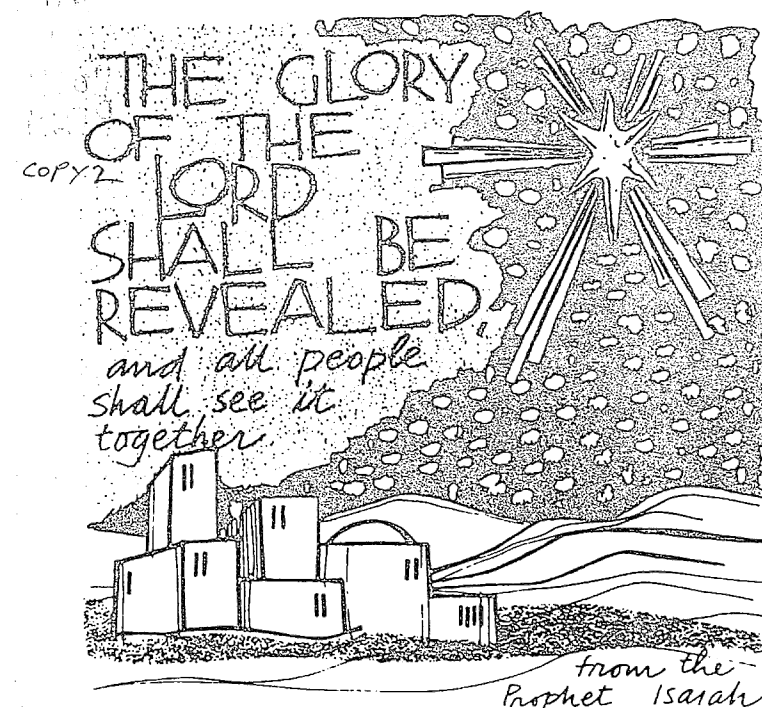 THE GLORY
OF THE
COPY 2
LORD
SHALL BE
REVEALED,
and all people
shall see it
together
from the
Prophet Isaiah